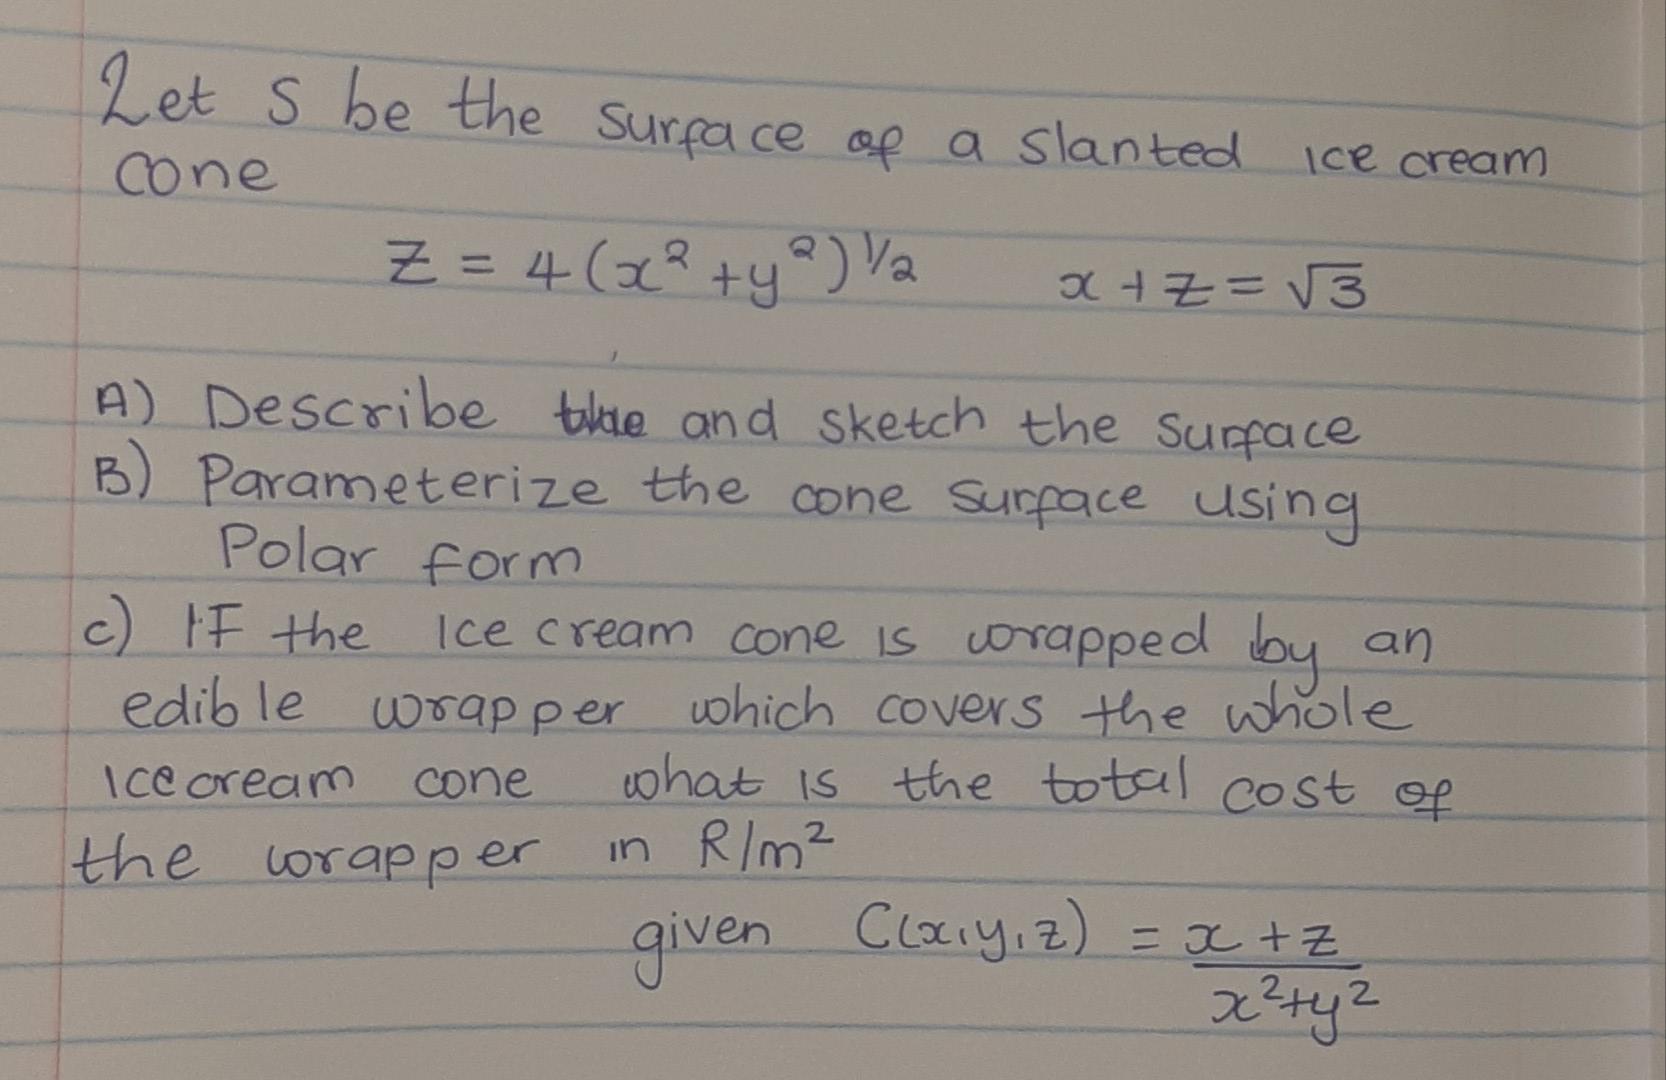 Let S be the surface of a slanted ice cream
cone
z = 4(x² + y²)^1/2 x + z = √3
A) Describe and sketch the surface
B) Parameterize the cone surface using
Polar form
C) IF the ice cream cone is wrapped by an
edible wrapper which covers the whole
icecream cone what is the total cost of
the wrapper in R/m²
given C(x,y,z) = x + z
x² + y²